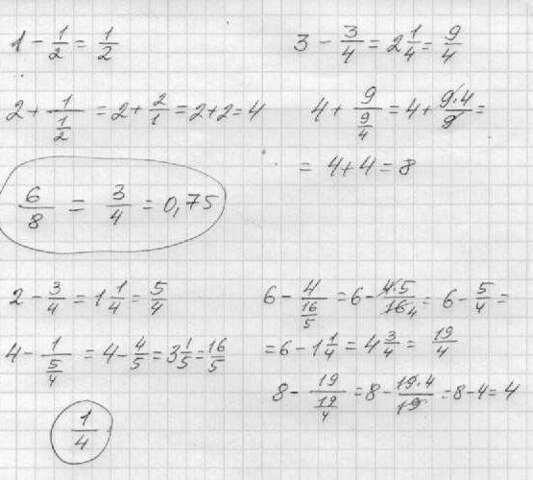 1 - 1/2 = 1/2
3 - 3/4 = 2 1/4 = 9/4
2 + 1/(1/2) = 2 + 2/1 = 2 + 2 = 4
4 + 9/(9/4) = 4 + 9·4/9 =
= 4 + 4 = 8
6/8 = 3/4 = 0,75
2 - 3/4 = 1 1/4 = 5/4
4 - 1/(5/4) = 4 - 4/5 = 3 1/5 = 16/5
1/4
6 - 4/(16/5) = 6 - 4·5/16 4 = 6 - 5/4 =
= 6 - 1 1/4 = 4 3/4 = 19/4
8 - 19/(19/4) = 8 - 19·4/19 = 8 - 4 = 4